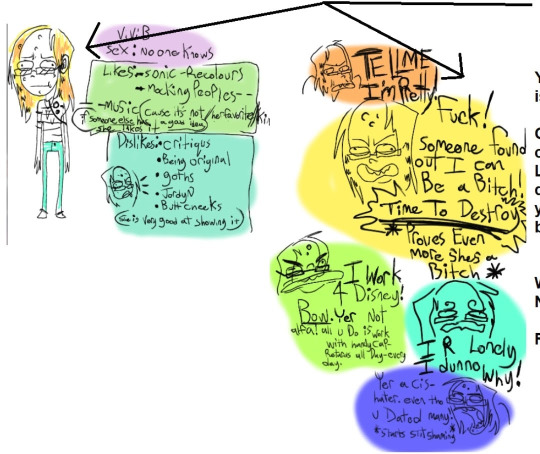 V.V.B
Sex: No one Knows
Likes:-sonic-Recolours
Mocking Peoples--
-Music (cause its not her favorite/kin
if someone else has a good idea
she takes it
Dislikes:critiqus
Being original
goths
JordyN
Buttcheeks
She is very good at showing it
TEll ME
I'm Pretty.
Fuck!
Someone found
out I can
Be a Bitch!
Time To Destroy
*Proves Even
more shes a
Bitch*
I Work
4 Disney!
Bow. Yer Not
all u Do is work
with handycap-
all Day-every
day.
I R Lonely
I dunno Why!
Yer a cis-
hater. even tho
u Dated many.
*starts slit shaming*
Y
is